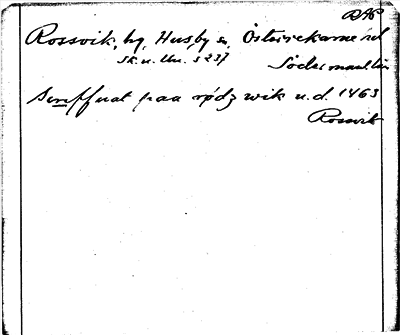 RAP
Rossvik, hg, Husby s, Österrekarne hd
Sk. u. Uu. s 237 Södermanlän
Senffuat paa rødz wik u.d. 1463
Rossvik